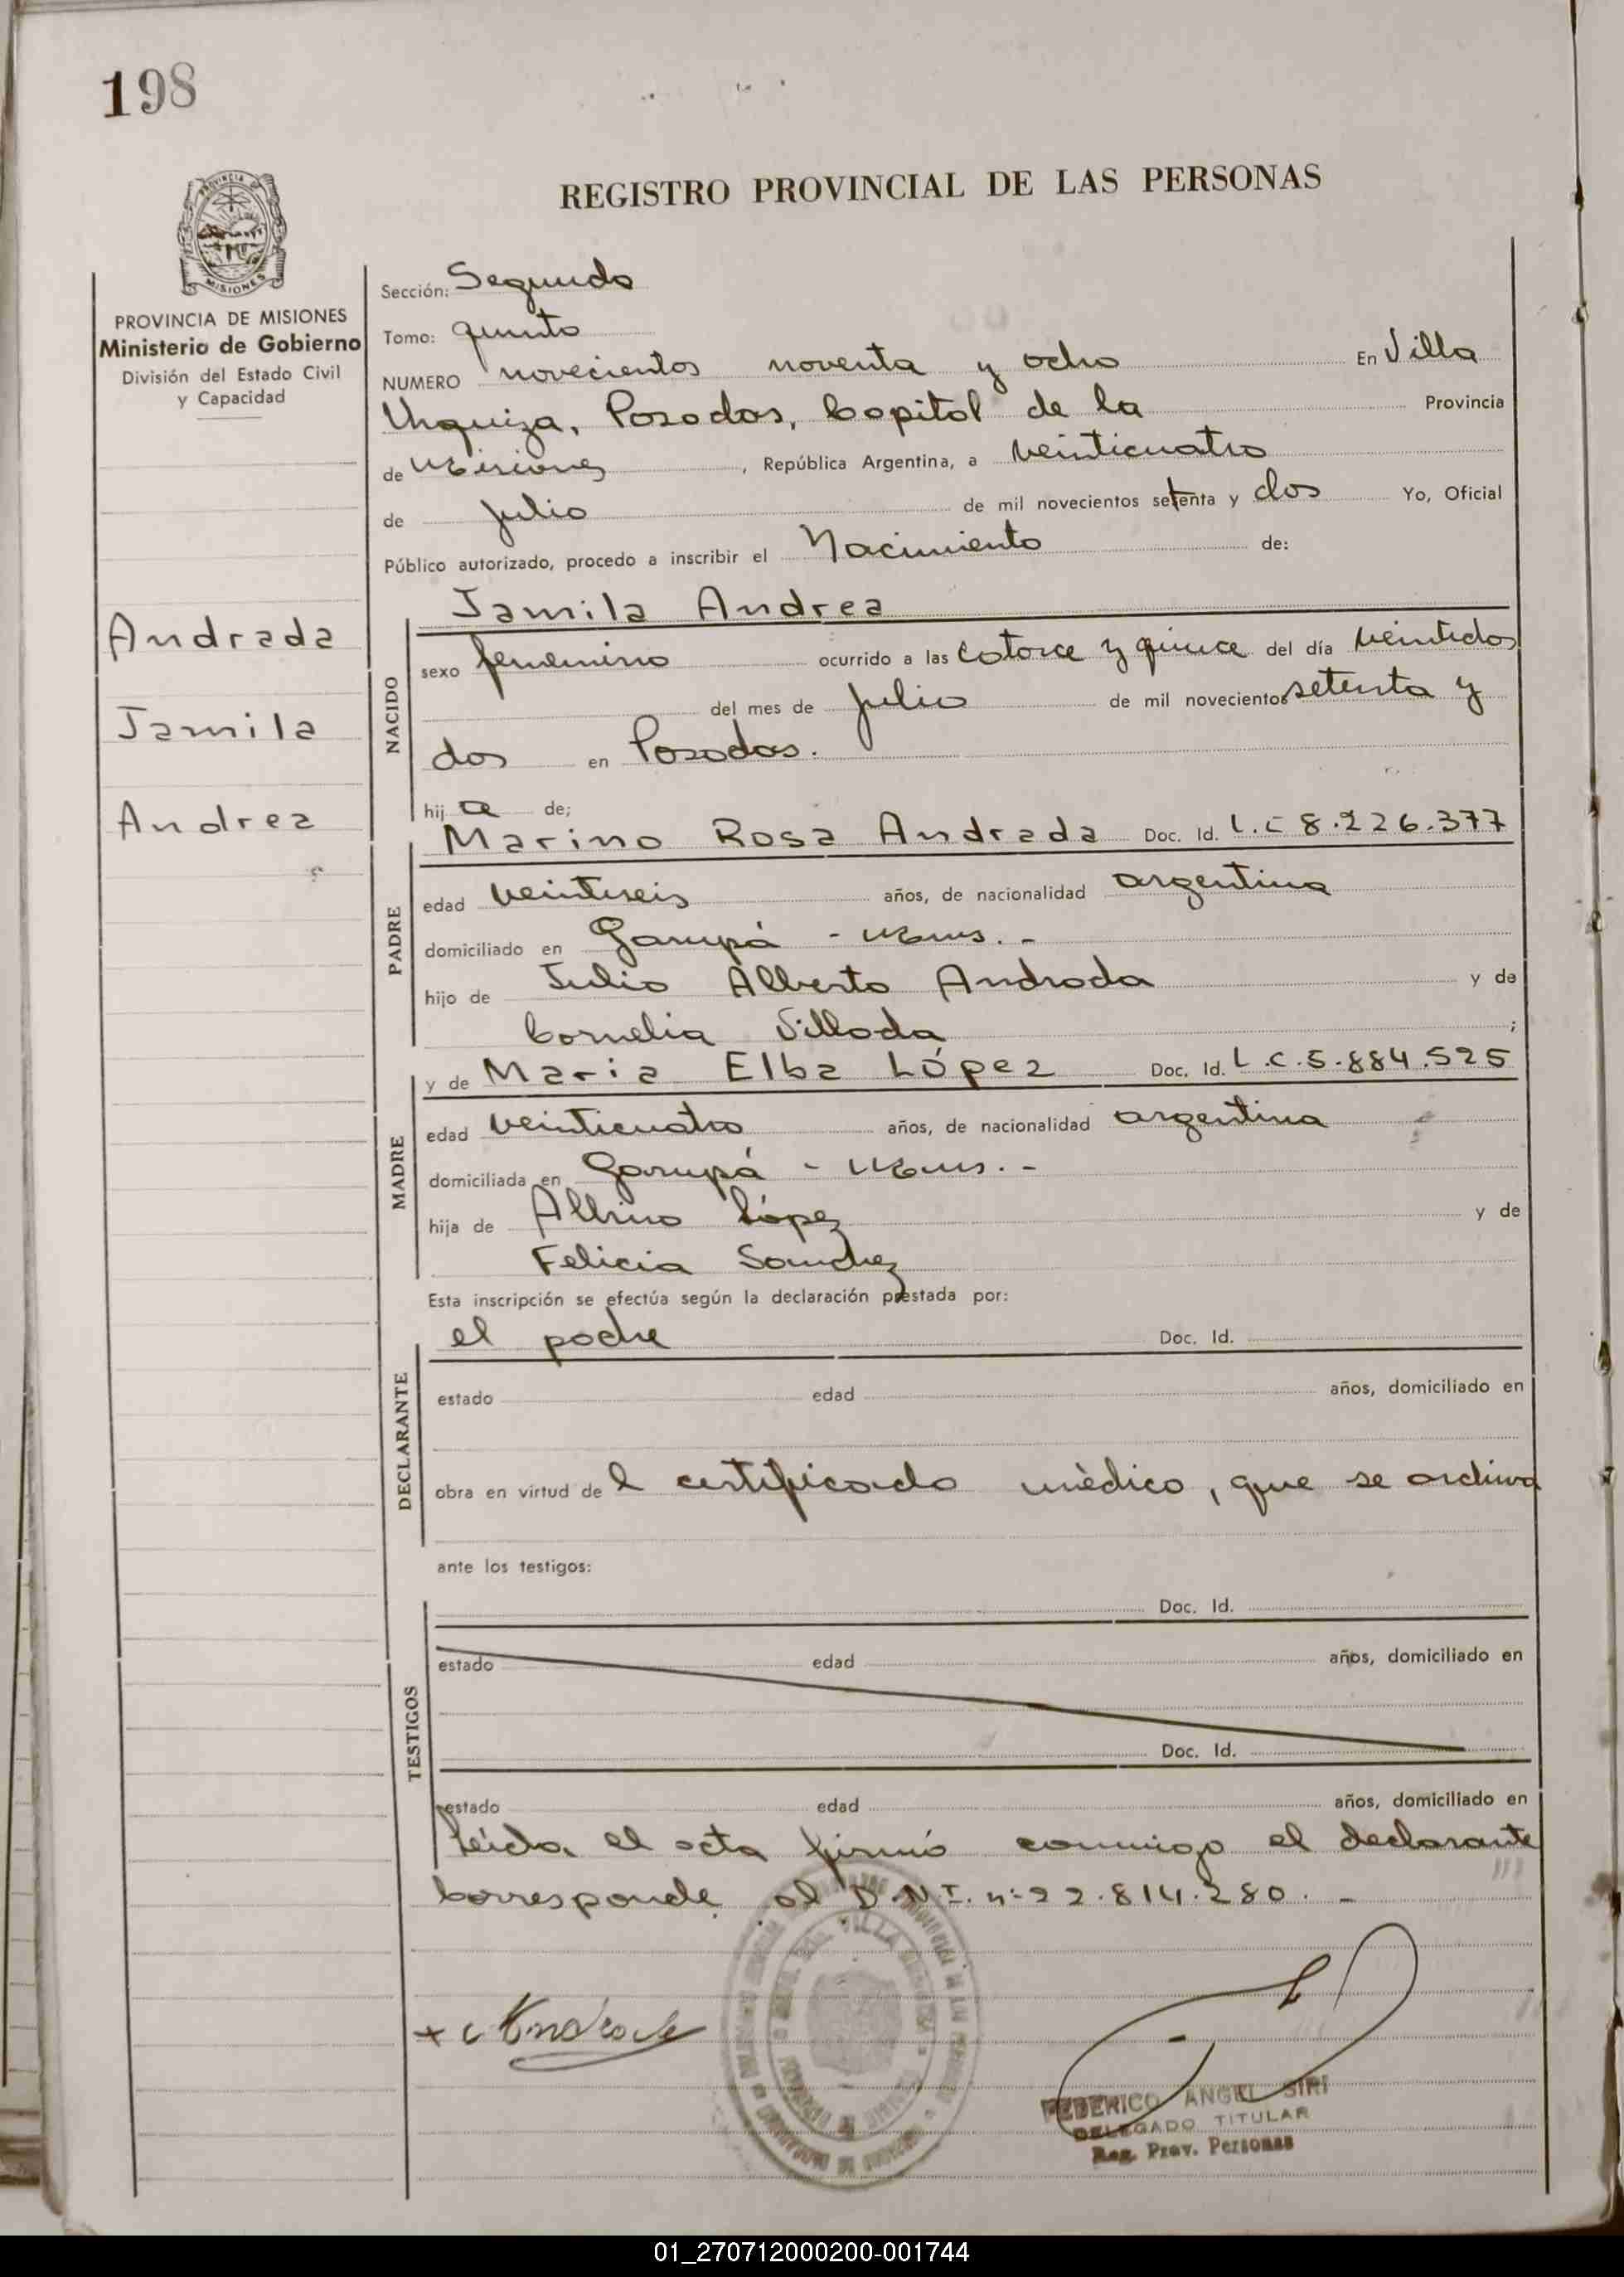 198
REGISTRO PROVINCIAL DE LAS PERSONAS
PROVINCIA DE MISIONES
Ministerio de Gobierno
División del Estado Civil
y Capacidad
Andrada
Jamila
Andrea
Sección: Segunda
Tomo: quinto
NUMERO novecientos noventa y ocho En Villa
Urquiza, Posadas, Capital de la Provincia
de Misiones, República Argentina, a veinticuatro
de julio de mil novecientos setenta y dos Yo, Oficial
Público autorizado, procedo a inscribir el Nacimiento de:
NACIDO
Jamila Andrea
sexo femenino ocurrido a las catorce y quince del día veintidos
del mes de julio de mil novecientos setenta y
dos en Posadas.
hija de;
PADRE
Marino Rosa Andrada Doc. Id. L.E 8.226.377
edad veintiseis años, de nacionalidad argentina
domiciliado en Garupá - Mnes. -
hijo de Julio Alberto Andrada y de
Cornelia Villada ;
MADRE
y de Maria Elba López Doc. Id. L.C.5.884.525
edad veinticuatro años, de nacionalidad argentina
domiciliada en Garupá - Mnes. -
hija de Albino López y de
Felicia Sanchez
Esta inscripción se efectúa según la declaración prestada por:
DECLARANTE
el padre Doc. Id.
estado edad años, domiciliado en
obra en virtud del certificado médico, que se archiva
ante los testigos:
TESTIGOS
Doc. Id.
estado edad años, domiciliado en
Doc. Id.
estado edad años, domiciliado en
Leída el acta firmó conmigo el declarante
Corresponde al D.N.I. nº 22.814.280. -
FEDERICO ANGEL SIRI
DELEGADO TITULAR
Reg. Prov. Personas
01_270712000200-001744